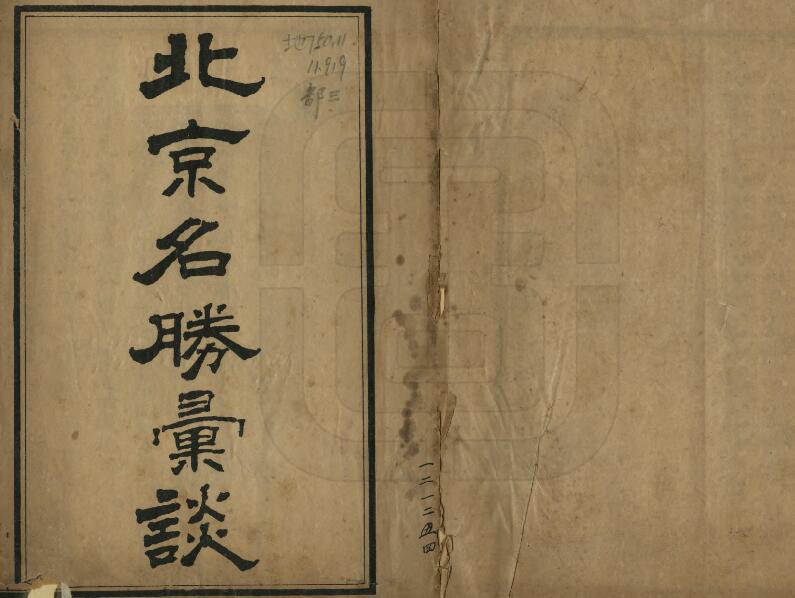 北京名勝彙談
地750.11
11.919
部三
一二一二五四